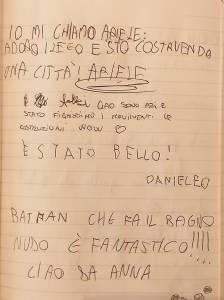 IO MI CHIAMO ARIELE:
ADORO I LEGO E STO COSTRUENDO
UNA CITTÀ! ARIELE
CIAO SONO
STATO I MOVIMENTI. LE
COSTRUZIONI WOW
È STATO BELLO!
DANIELEO
BATMAN CHE FA IL BAGNO
NUDO È FANTASTICO!!!!
CIAO DA ANNA